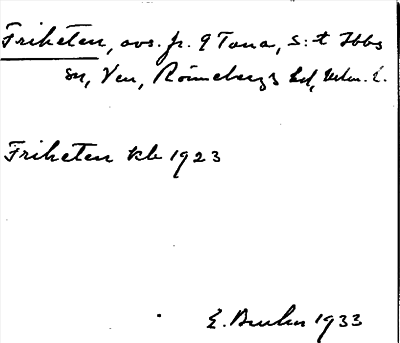 Friheten, avs. fr. 9 Tuna, S:t Ibbs
sn, Ven, Rönnebergs hd, Malm. l.
Friheten kb 1923
E. 1933